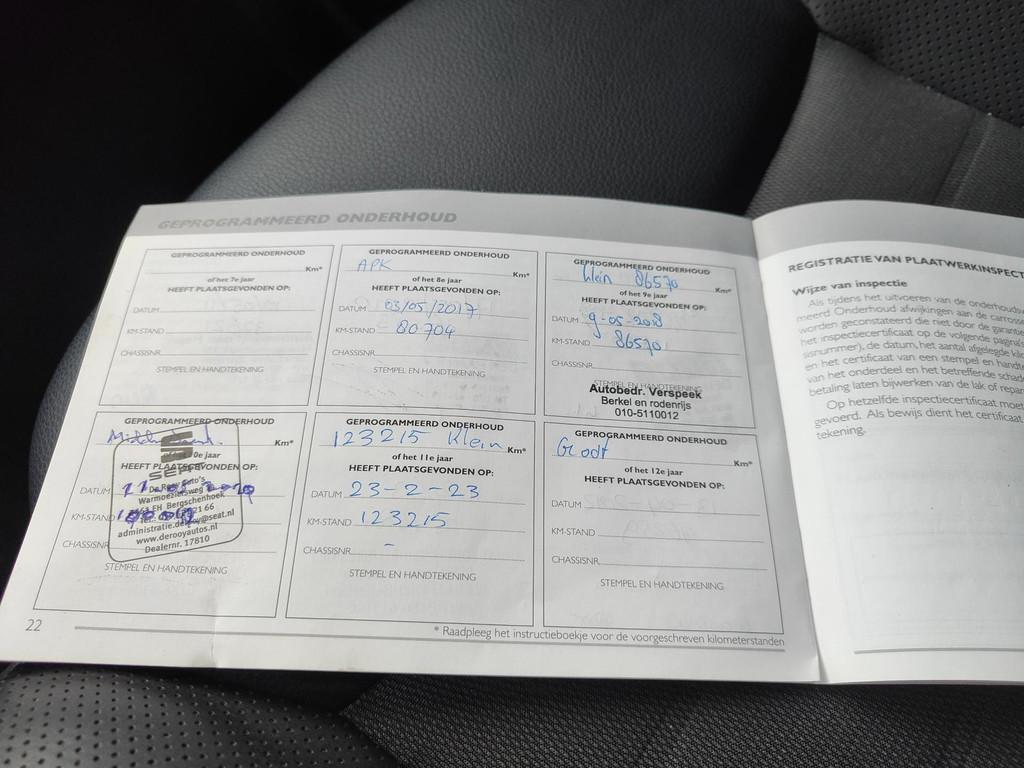 GEPROGRAMMEERD ONDERHOUD
GEPROGRAMMEERD ONDERHOUD
Km*
of het 7e jaar
HEEFT PLAATSGEVONDEN OP:
DATUM
KM-STAND
CHASSISNR.
STEMPEL EN HANDTEKENING
GEPROGRAMMEERD ONDERHOUD
APK Km*
of het 8e jaar
HEEFT PLAATSGEVONDEN OP:
DATUM 03/05/2017
KM-STAND 80704
CHASSISNR.
STEMPEL EN HANDTEKENING
GEPROGRAMMEERD ONDERHOUD
klein 86570 Km*
of het 9e jaar
HEEFT PLAATSGEVONDEN OP:
DATUM 9-05-2018
KM-STAND 86570
CHASSISNR.
STEMPEL EN HANDTEKENING
Autobedr. Verspeek
Berkel en rodenrijs
010-5110012
GEPROGRAMMEERD ONDERHOUD
Km*
10e jaar
HEEFT PLAATSGEVONDEN OP:
SEAT
De Rooy Auto's
DATUM
Warmoeziersweg
EH Bergschenhoek
KM-STAND
21 66
administratie.derooy@seat.nl
www.derooyautos.nl
CHASSISNR.
Dealernr. 17810
STEMPEL EN HANDTEKENING
GEPROGRAMMEERD ONDERHOUD
123215 Klein Km*
of het 11e jaar
HEEFT PLAATSGEVONDEN OP:
DATUM 23-2-23
KM-STAND 123215
CHASSISNR. -
STEMPEL EN HANDTEKENING
GEPROGRAMMEERD ONDERHOUD
Groot Km*
of het 12e jaar
HEEFT PLAATSGEVONDEN OP:
DATUM
KM-STAND
CHASSISNR.
STEMPEL EN HANDTEKENING
22
* Raadpleeg het instructieboekje voor de voorgeschreven kilometerstanden
REGISTRATIE VAN PLAATWERKINSPECT
Wijze van inspectie
Als tijdens het uitvoeren van de onderhouds
meerd Onderhoud afwijkingen aan de carrosse
worden geconstateerd die niet door de garantie
het inspectiecertificaat op de volgende pagina's
sisnummer), de datum, het aantal afgelegde kilo
en het certificaat van een stempel en handte
van het onderdeel en het betreffende schade
betaling laten bijwerken van de lak of repar
Op hetzelfde inspectiecertificaat moet
gevoerd. Als bewijs dient het certificaat
tekening.